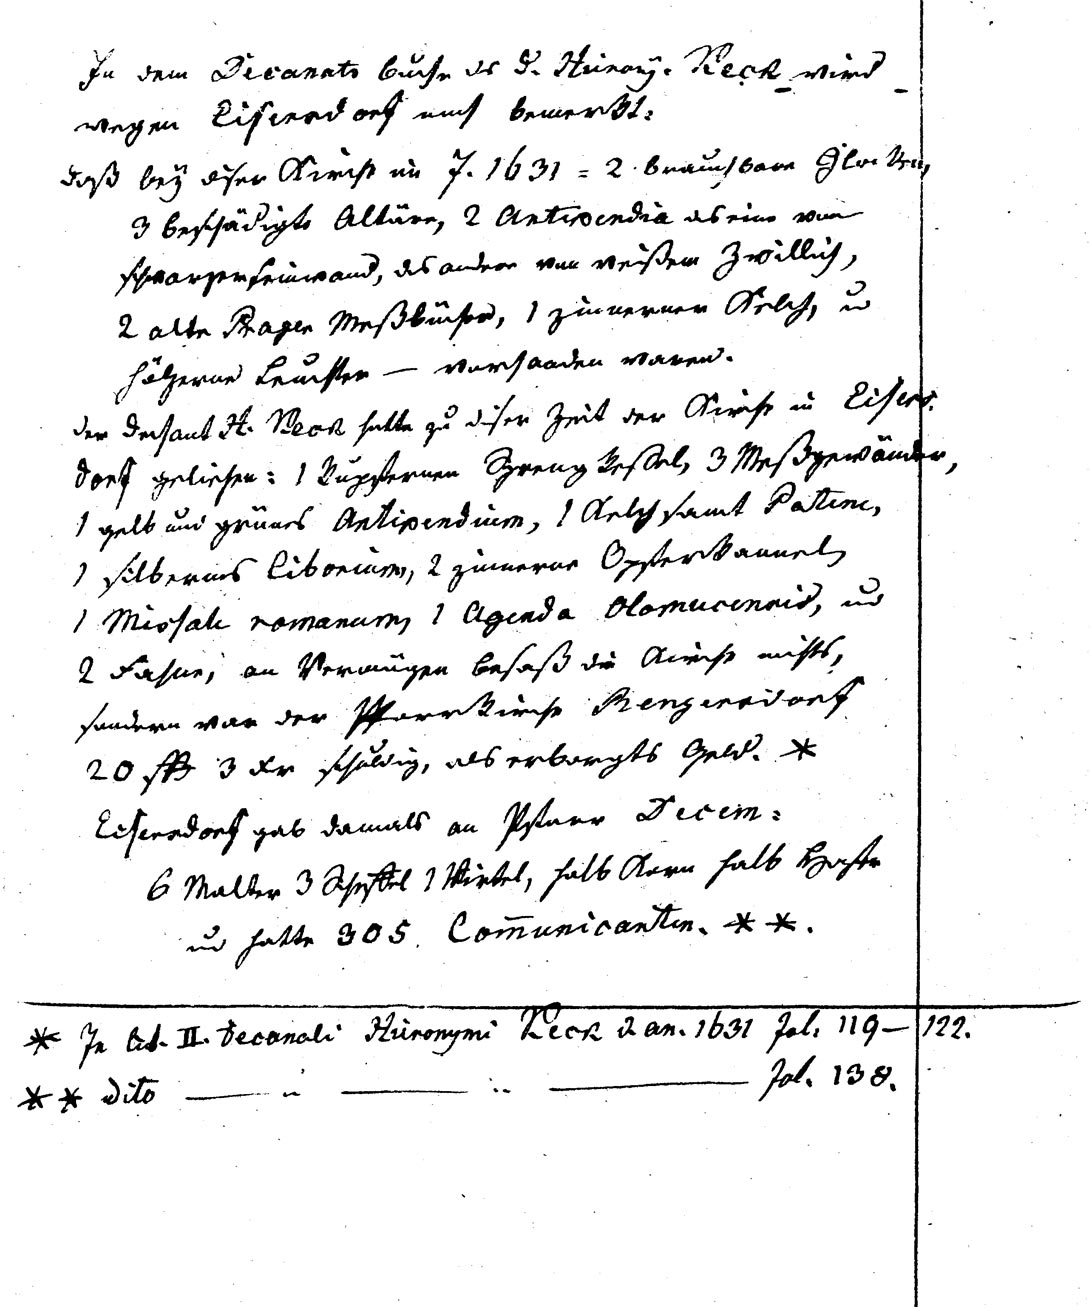 In dem Decanats buche des D. Hieronÿ. Keck wird
wegen Eisersdorf noch bemerkt:
daß beÿ diser Kirche im J. 1631 = 2 brauchbare Glocken,
3 beschädigte Altäre, 2 Antipendia das eine von
schwarzer Leinwand, das andere von weißem Zwillich,
2 alte Prager Meßbücher, 1 zinnerner Kelch, und
hölzerne Leuchter — vorhanden waren.
der Dechant H. Keck hatte zu diser Zeit der Kirche in Eisers-
dorf geliehen: 1 kupfernen Sprengkessel, 3 Meßgewänder,
1 gelb und grünes Antipendium, 1 Kelch samt Patine,
1 silbernes Ciborium, 2 zinnerne Opferkannel,
1 Missale romanum, 1 Agenda Olomucensis, und
2 Fahne; an Vermögen besaß die Kirche nichts,
sondern war der Pfarrkirche Rengersdorf
20 3 kr schuldig, als erborgtes Geld. *
Eisersdorf gab damals an Pfarr Decem:
6 Malter 3 Scheffel 1 Virtel, halb Korn halb Hafer
und hatte 305 Communicanten. * *.
* In Lib. II. Decanali Hieronymi Keck d an. 1631 fol. 119 — 122.
* * dito — " — " — fol. 138.